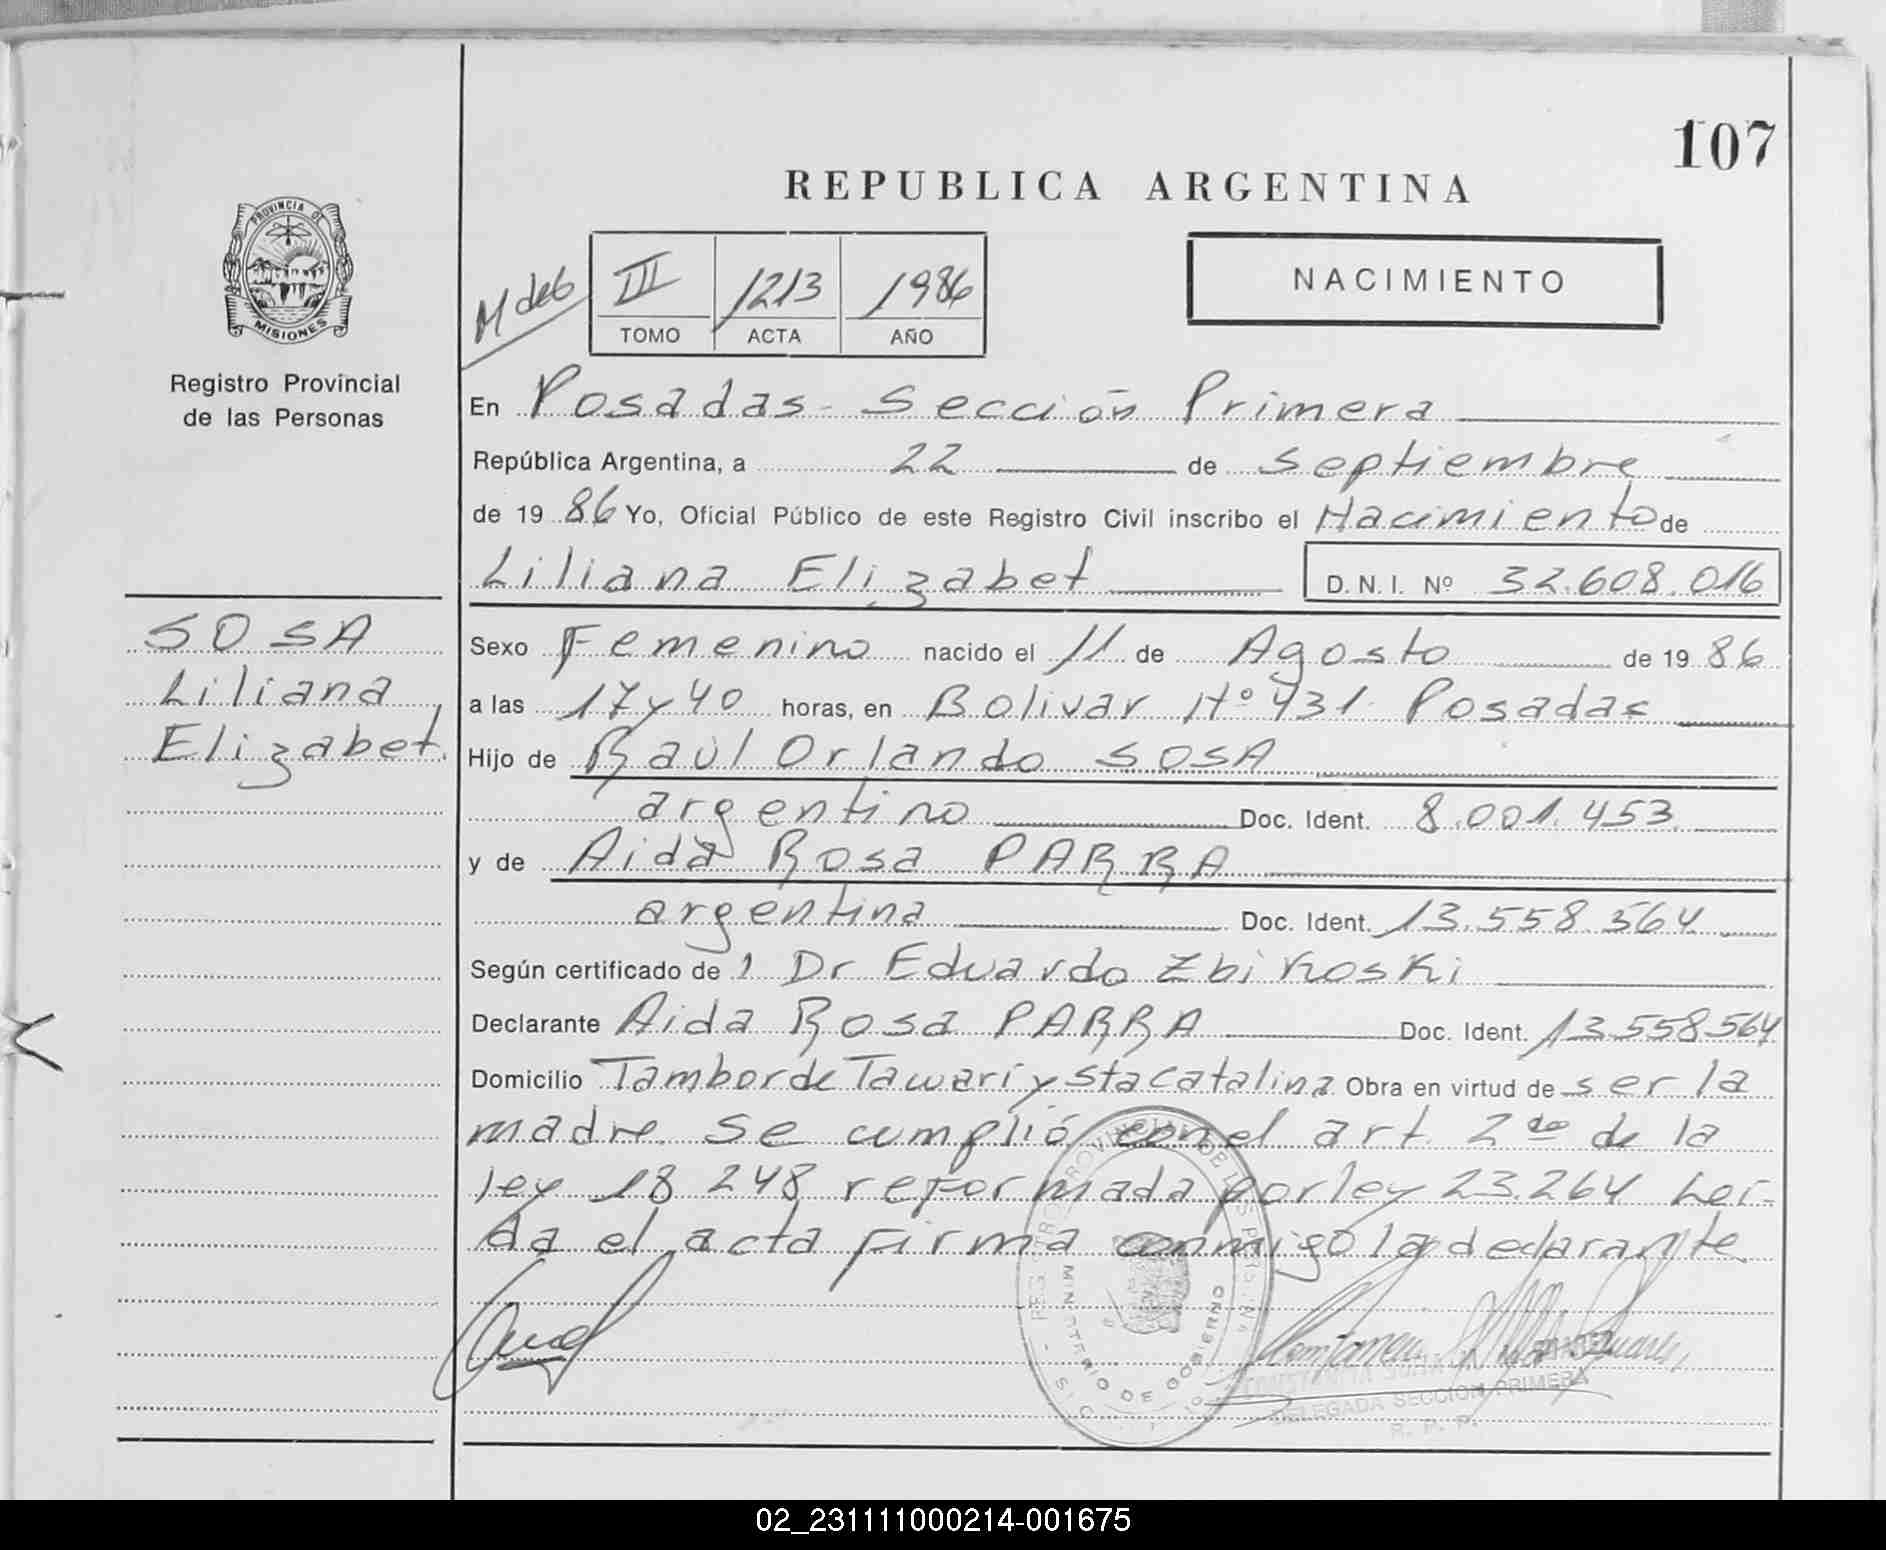 107
REPUBLICA ARGENTINA
PROVINCIA DE
MISIONES
Registro Provincial
de las Personas
M deb
III 1213 1986
TOMO ACTA AÑO
NACIMIENTO
En Posadas - Sección Primera
República Argentina, a 22 de Septiembre
de 19 86 Yo, Oficial Público de este Registro Civil inscribo el Nacimiento de
Liliana Elizabet D. N. I. Nº 32.608.016
SOSA
Liliana
Elizabet.
Sexo Femenino nacido el 11 de Agosto de 19 86
a las 17 y 40 horas, en Bolivar Nº 431 Posadas
Hijo de Raúl Orlando SOSA
argentino Doc. Ident. 8.001.453
y de Aida Rosa PARRA
argentina Doc. Ident. 13.558.564
Según certificado de 1 Dr Eduardo Zbikoski
Declarante Aida Rosa PARRA Doc. Ident. 13.558.564
Domicilio Tambor de Tawari y Sta Catalina Obra en virtud de ser la
madre. Se cumplió con el art. 2do de la
ley 18 248 reformada por ley 23.264 Leí-
da el acta firma conmigo la declarante
MINISTERIO DE GOBIERNO
DELEGADA SECCION PRIMERA
R. P. P.
02_231111000214-001675